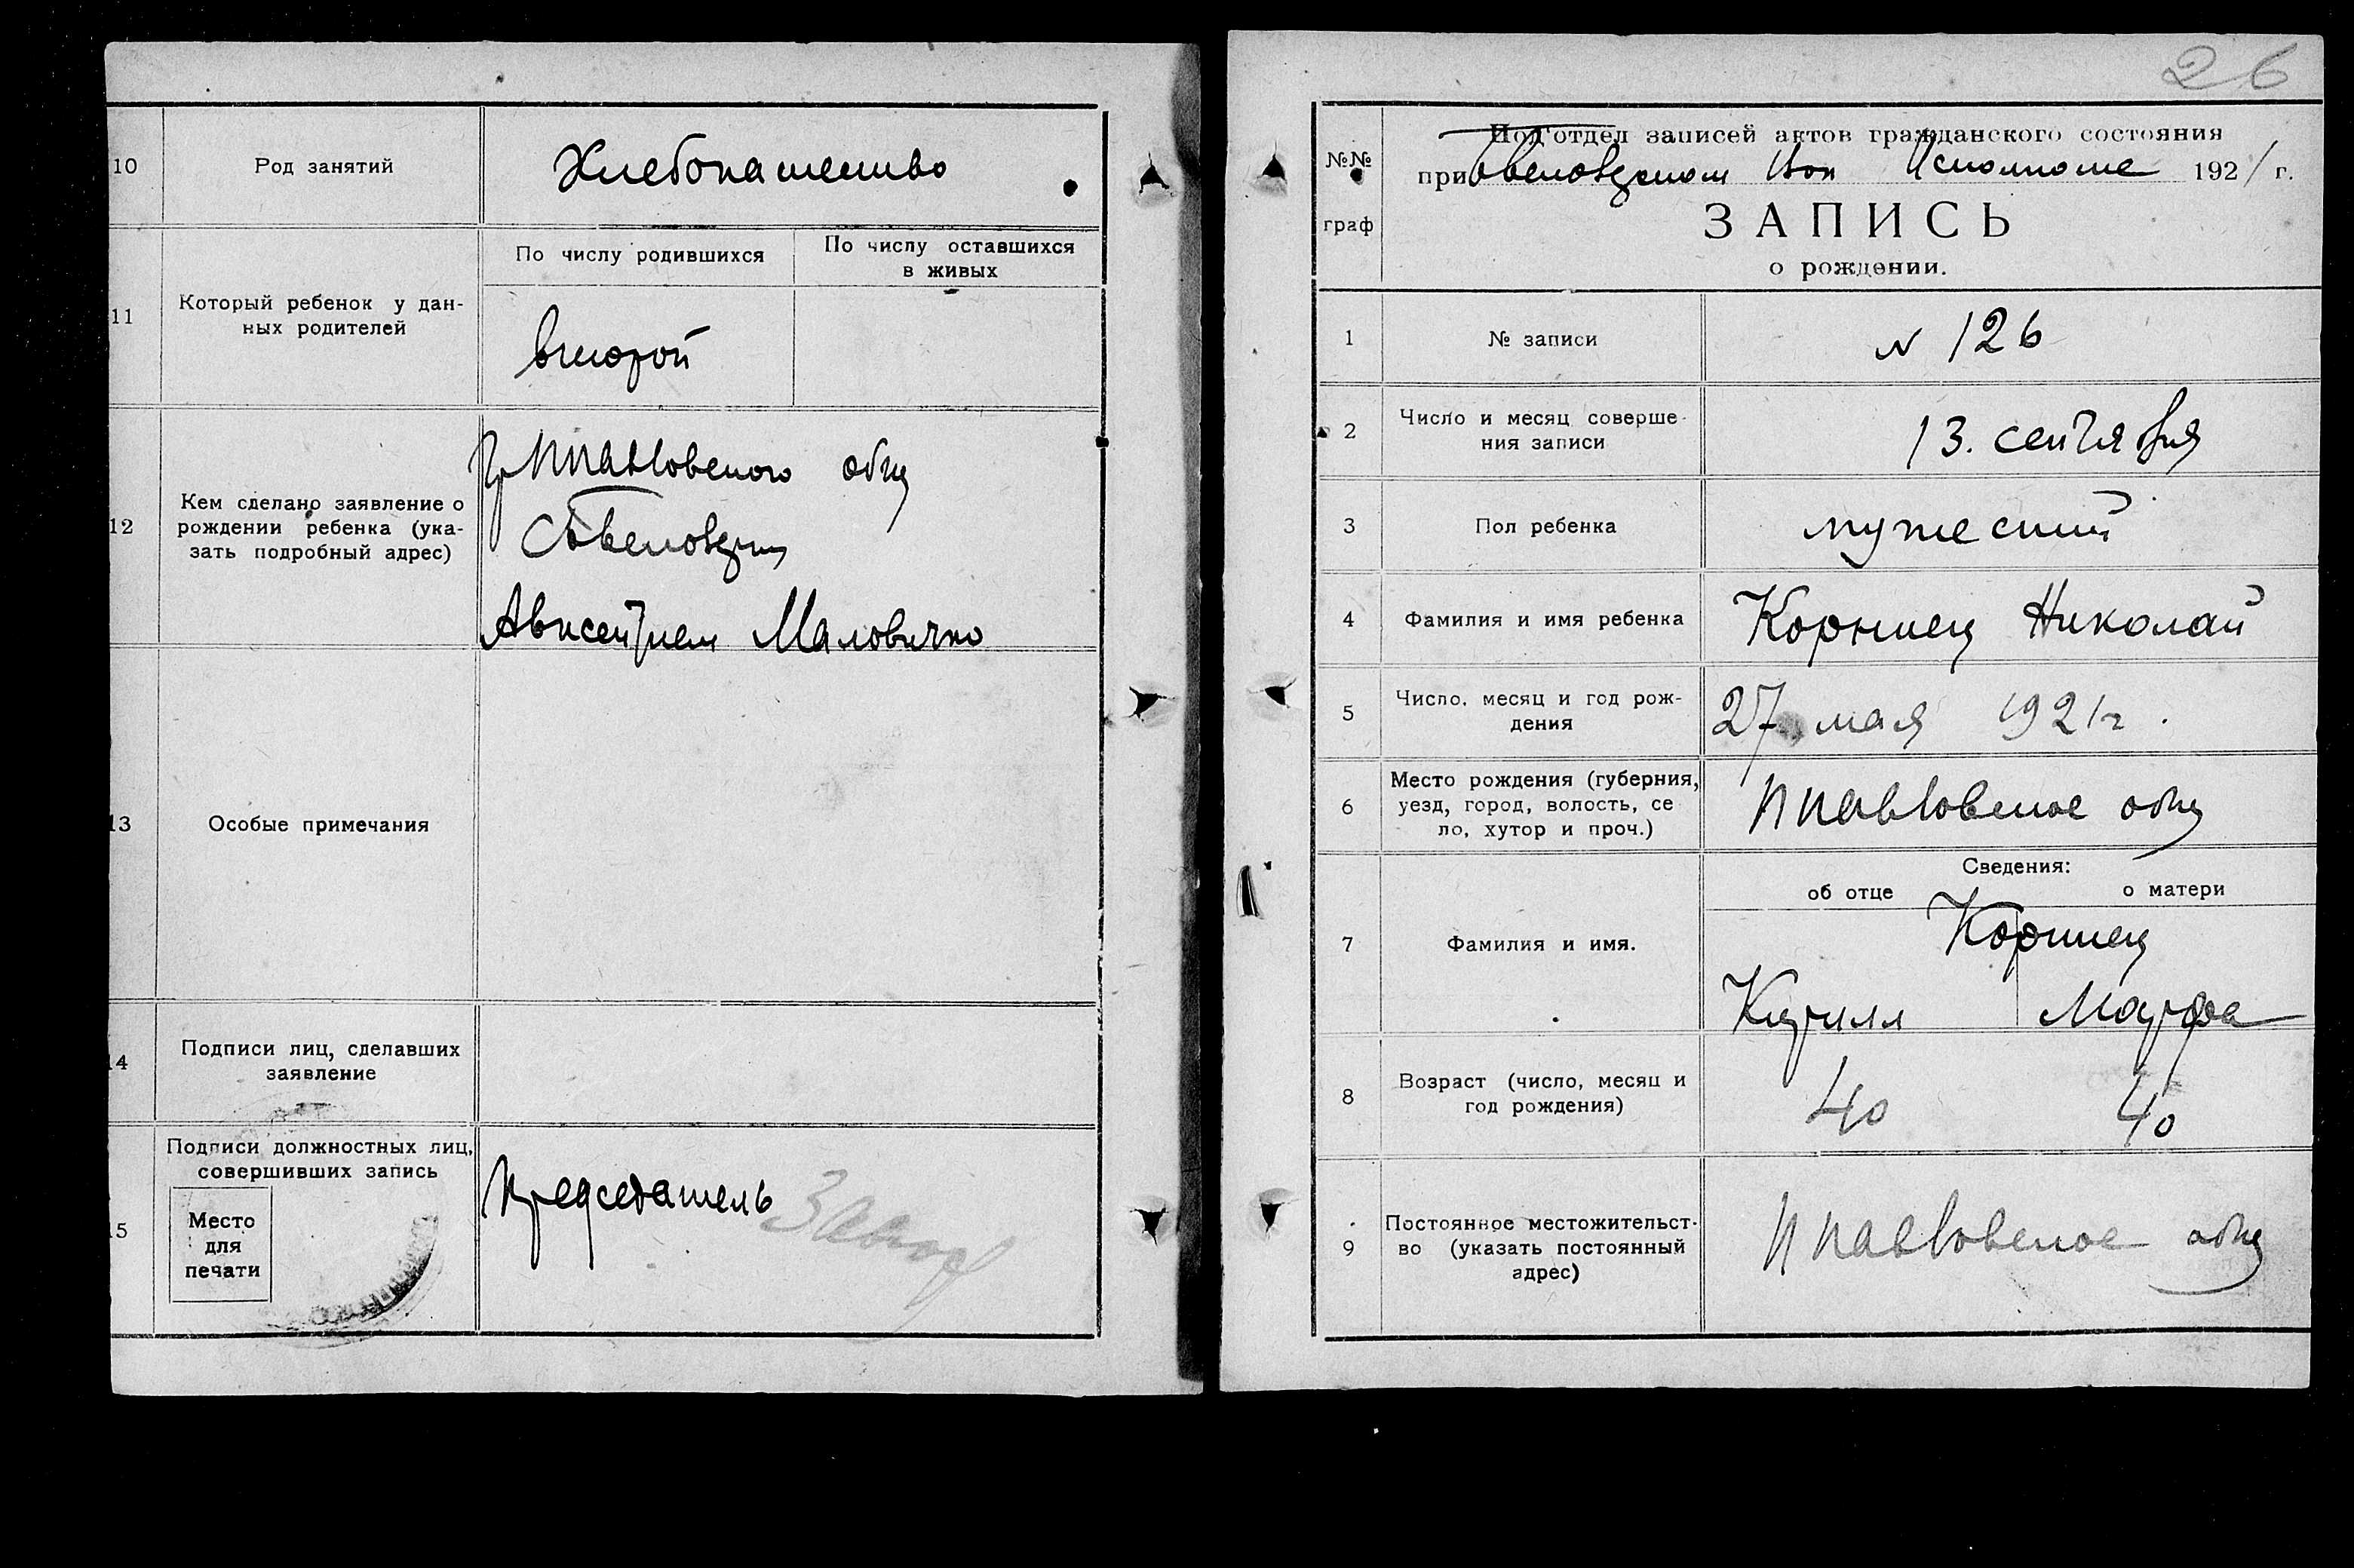 10
Род занятий
Хлебопашество
11
Который ребенок у дан-
ных родителей
По числу родившихся
По числу оставшихся
в живых
второй
12
Кем сделано заявление о
рождении ребенка (ука-
зать подробный адрес)
общ
Авксентием Маловичко
13
Особые примечания
14
Подписи лиц, сделавших
заявление
15
Подписи должностных лиц,
совершивших запись
Место
для
печати
Председатель
26
№№
граф
Под'отдел записей актов гражданского состояния
при Вол Исполкоме 1921 г.
ЗАПИСЬ
о рождении.
1
№ записи
N 126
2
Число и месяц соверше-
ния записи
13. сентября
3
Пол ребенка
мужеский
4
Фамилия и имя ребенка
Корниец Николай
5
Число, месяц и год рож-
дения
27 мая 1921 г.
6
Место рождения (губерния,
уезд, город, волость, се
ло, хутор и проч.)
общ
Сведения:
об отце
о матери
7
Фамилия и имя.
Корниец
Кирилл
Марфа
8
Возраст (число, месяц и
год рождения)
40
40
9
Постоянное местожительст-
во (указать постоянный
адрес)
общ